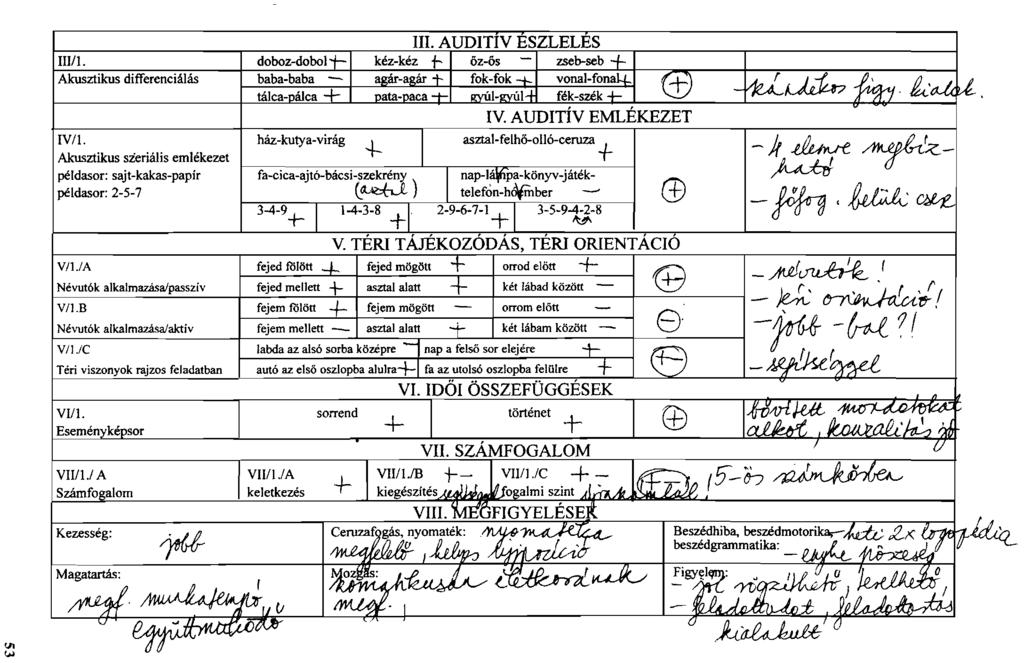 III. AUDITÍV ÉSZLELÉS
III/1. doboz-dobol + kéz-kéz + őz-ős — zseb-seb +
Akusztikus differenciálás baba-baba — agár-agár + fok-fok + vonal-fonal + (+)
tálca-pálca + pata-paca + gyúl-gyúl + fék-szék + figy. kialak.
IV. AUDITÍV EMLÉKEZET
IV/1. ház-kutya-virág + asztal-felhő-olló-ceruza + - 4 elemre megbíz-
Akusztikus szeriális emlékezet ható
példasor: sajt-kakas-papír fa-cica-ajtó-bácsi-szekrény (asztal) nap-lámpa-könyv-játék- (+)
példasor: 2-5-7 telefon-hóember — - főfog. belüli csere
3-4-9 + 1-4-3-8 + 2-9-6-7-1 + 3-5-9-4-2-8
V. TÉRI TÁJÉKOZÓDÁS, TÉRI ORIENTÁCIÓ
V/1./A fejed fölött + fejed mögött + orrod előtt + - névutók!
Névutók alkalmazása/passzív fejed mellett + asztal alatt + két lábad között —
V/1.B fejem fölött + fejem mögött — orrom előtt — - téri orientáció!
Névutók alkalmazása/aktív fejem mellett — asztal alatt + két lábam között — - jobb - bal?!
V/1./C labda az alsó sorba középre — nap a felső sor elejére +
Téri viszonyok rajzos feladatban autó az első oszlopba alulra + fa az utolsó oszlopba felülre + - segítséggel
VI. IDŐI ÖSSZEFÜGGÉSEK
VI/1. sorrend + történet + (+) bővített mondatokat
Eseményképsor alkot, kauzalitás jó
VII. SZÁMFOGALOM
VII/1./ A VII/1./A + VII/1./B + — VII/1./C + — 5-ös számkörben
Számfogalom keletkezés kiegészítés segítséggel fogalmi szint újraszámlál!
VIII. MEGFIGYELÉSEK
Kezesség: jobb
Ceruzafogás, nyomaték: nyomatéka
megfelelő, helyes
Beszédhiba, beszédmotorika, - heti 2x logopédia
beszédgrammatika: - enyhe pöszeség
Magatartás:
megf. munkatempó,
együttműködő
Mozgás:
életkorának
megf.
Figyelem:
- jól rögzíthető, terelhető,
- feladattudat, feladattartás
kialakult
53